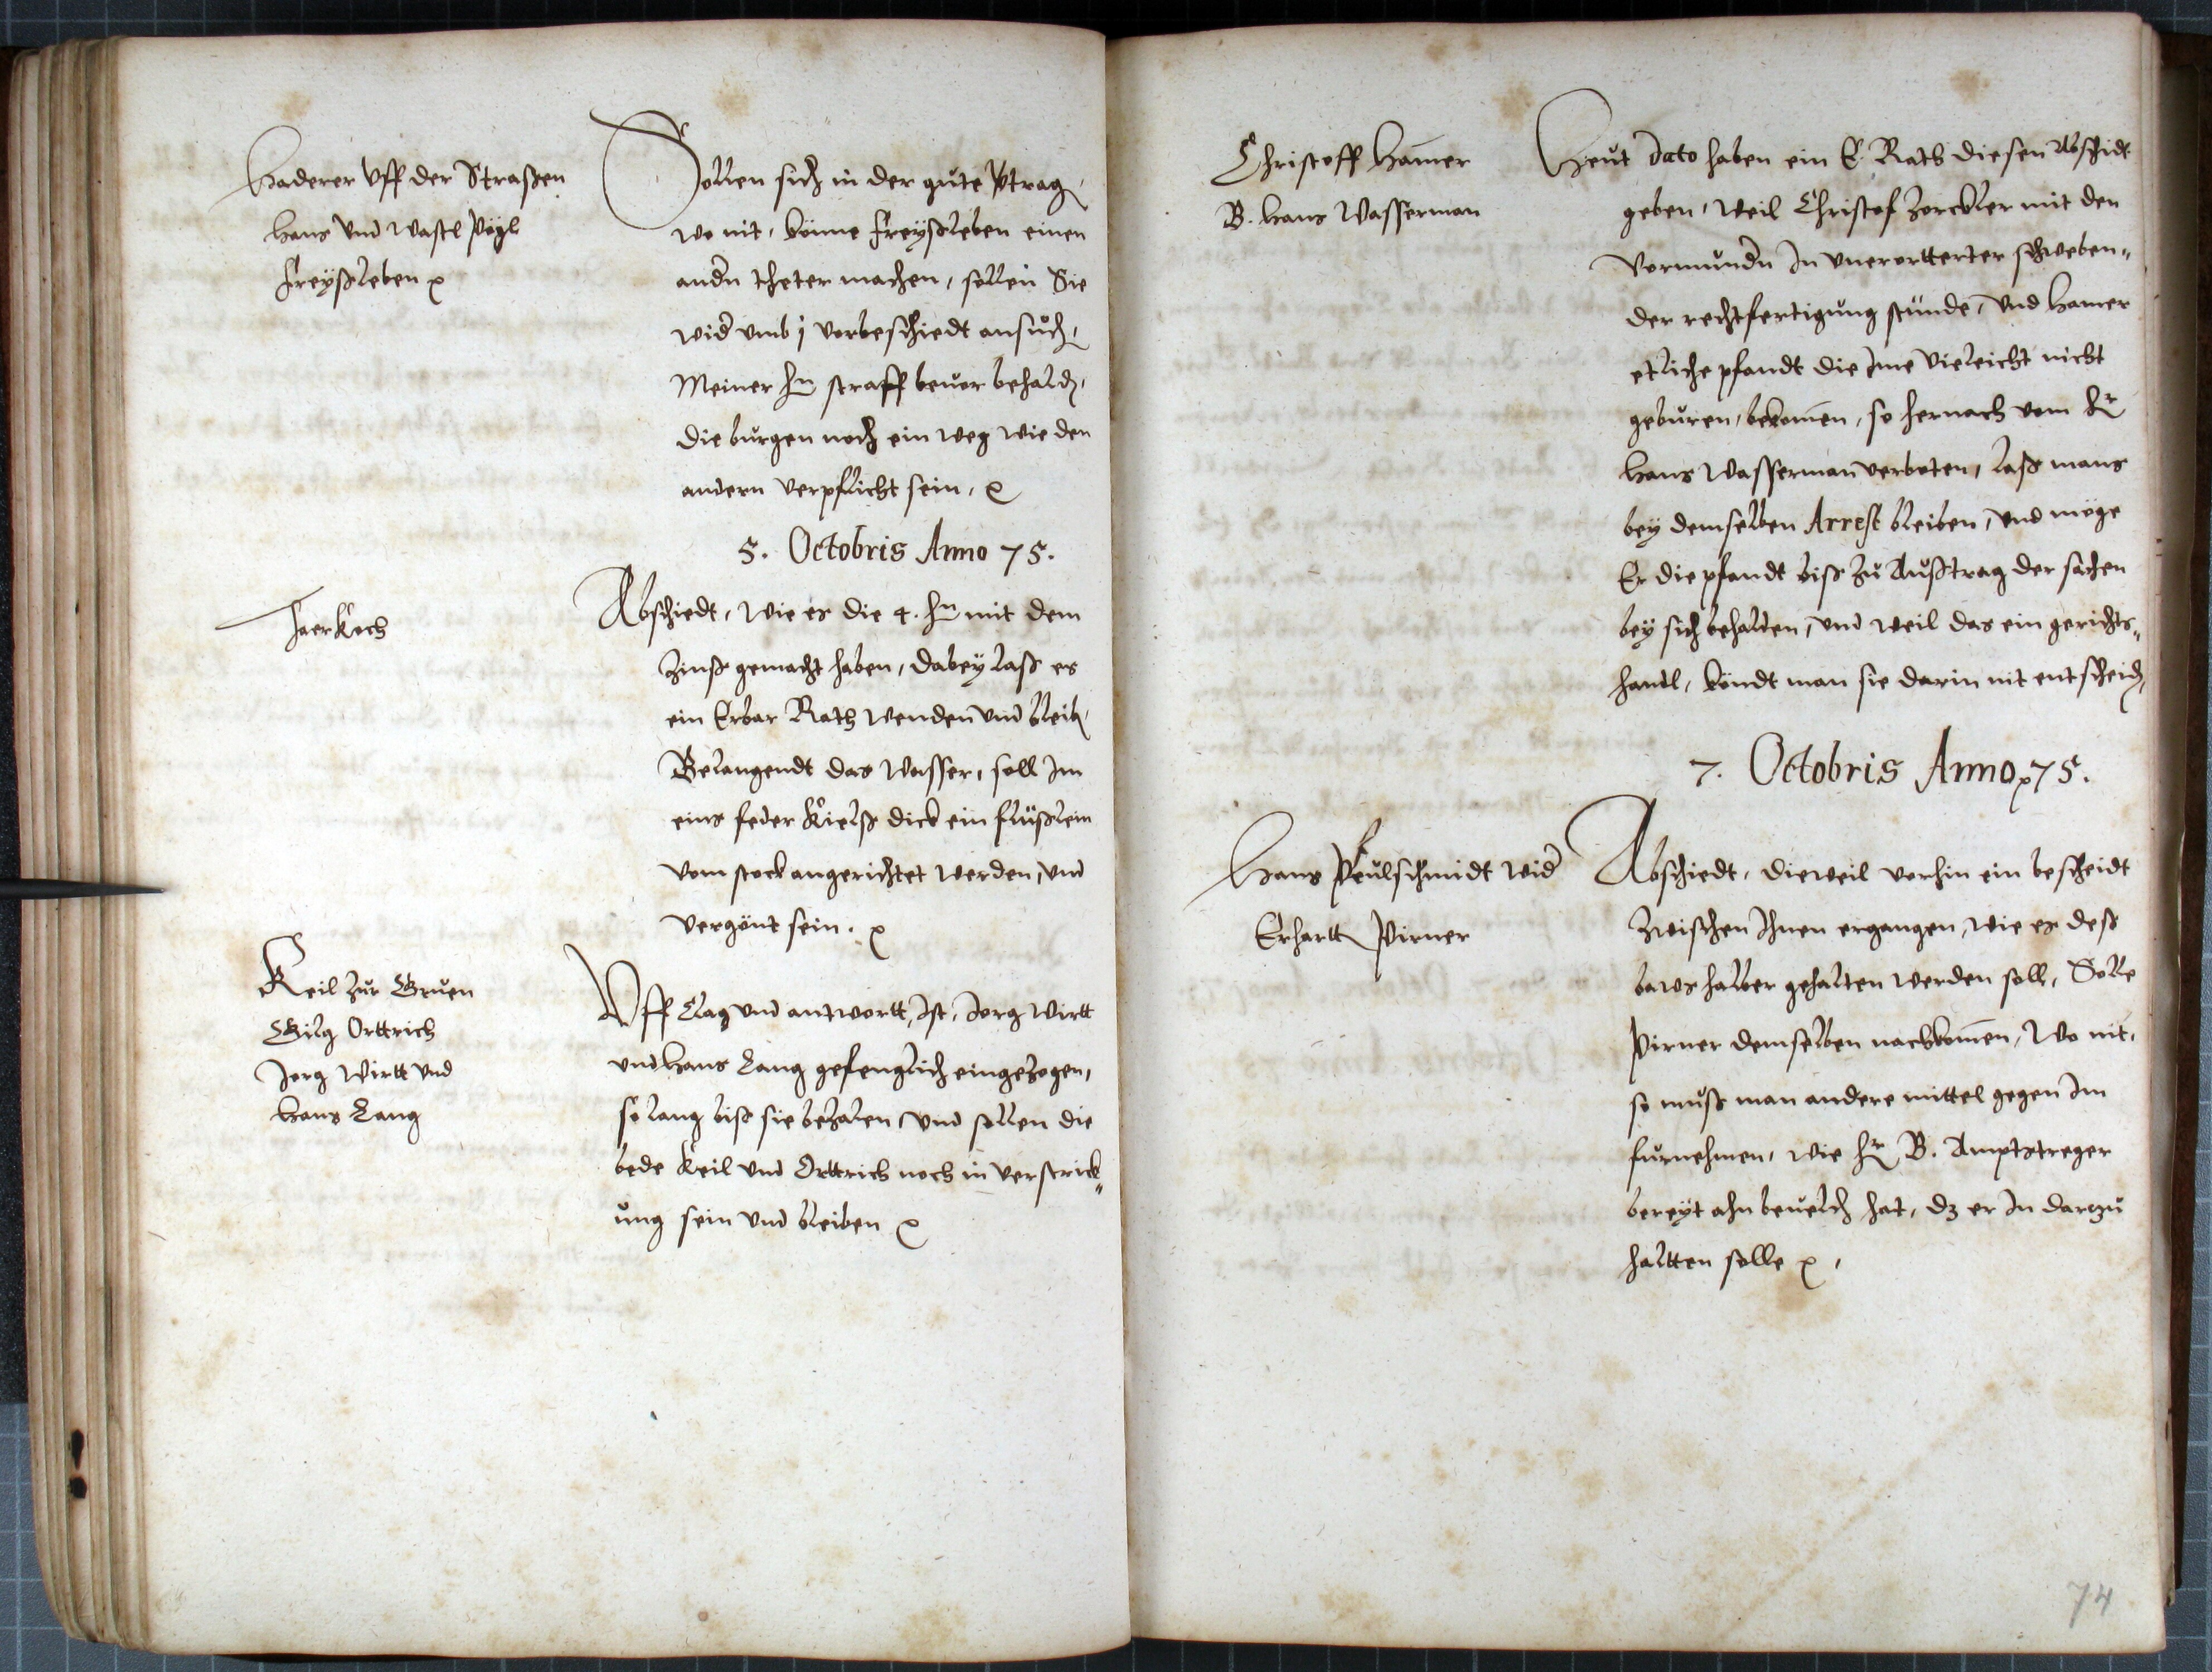 Haderer Vff der Straßen
Hans Vnd Wastl Pögl
Freyßleben ꝛc

Sollen sich in der güte Vtrag,
wo nit, könne Freyßleben einen
andn theter machen, sollen Sie
wid vmb j vorbeschiedt ansuch,
Meiner hn straff beuor behald,
die burgen noch ein weg wie den
andern Verpflicht sein, ꝛc

5. Octobris Anno 75.

Koch
Abschiedt, Wie es die 4. hn mit dem
Zinß gemacht haben, dabey laß es
ein Erbar Rath wenden vnd bleib,
Belangendt das Wasser, soll Im
eins feder Kielß dick ein flüßlein
vom stock angerichtet werden, vnd
vergönt sein. ꝛc

Keil zur Gruen
Gilg Orttrich
Jorg Wirtt vnd
Hans Lang

Vff Clag vnd antwortt, Ist, Jorg Wirtt
vnd Hans Lang gefenglich eingezogen,
so lang biß sie bezalen, vnd sollen die
bede Keil vnd Orttrich noch in verstrick„
ung sein vnd bleiben ꝛc

Christoff Hamer
B. Hans Wasserman

Heut dato haben ein E. Rath diesen Abschidt
geben, Weil Christof Zorckler mit den
Vormundn In vnerortterter schweben„
der rechtfertigung stünde, Vnd Hamer
etliche pfandt die Ime Vieleicht nicht
geburen, bekomen, so hernach vom Hr
Hans Wasserman verboten, laß mans
bey demselben Arrest bleiben, vnd möge
Er die pfandt biß zu Außtrag der sachen
bey sich behalten, vnd weil das ein gerichts„
handl, köndt man sie darin nit entscheid,

7. Octobris Anno 75.

Hans Peulschmidt wid
Erhartt Pirner

Abschiedt, dieweil vorhin ein bescheidt
zwischen Ihnen ergangen, wie es deß
baws halber gehalten werden soll, Solle
Pirner demselben nachkomen, Wo nit,
so muß man andere mittel gegen Im
furnehmen, wie hr B. Amptstreger
bereyt ahn beuelch hat, dz er In darzu
haltten solle ꝛc,

74